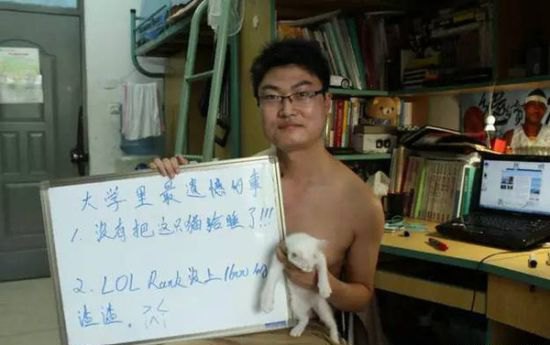 大学里最遗憾的事
1. 没有把这只猫给睡了!!!
2. LOL Rank没上1600的
渣渣。